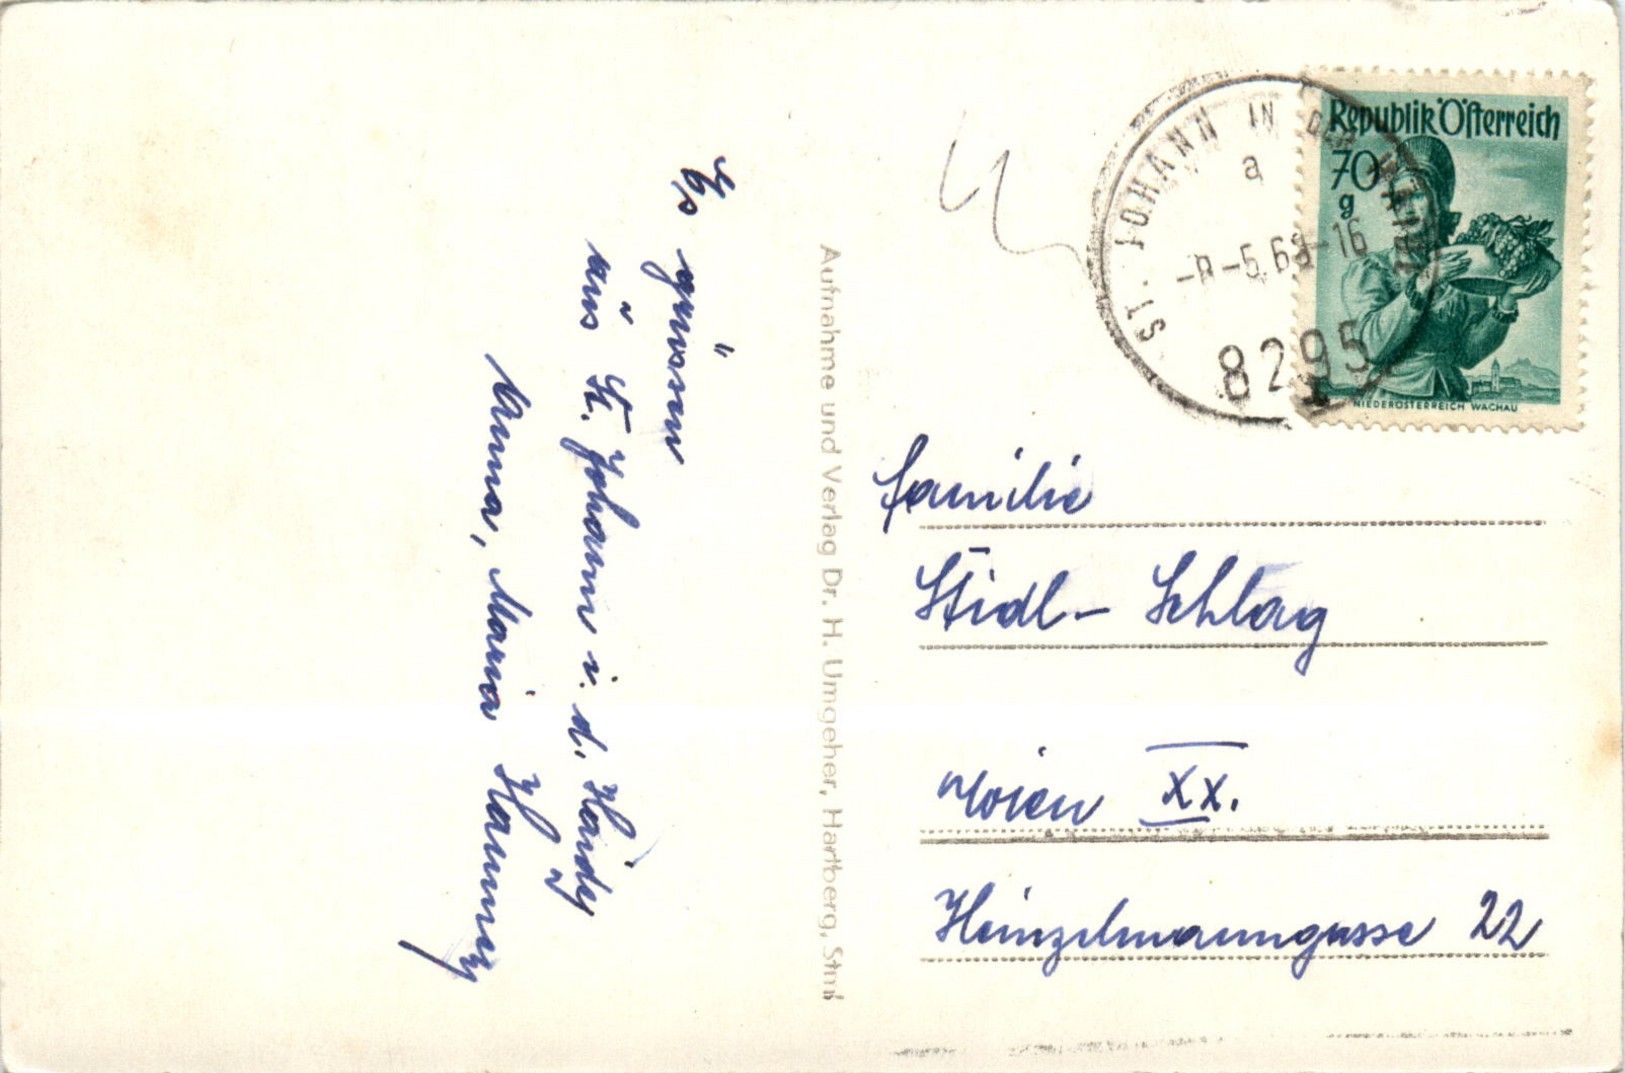 Es grüssen
aus St. Johann i. d. Haide
Anna, Maria
Aufnahme und Verlag Dr. H. Umgeher, Hartberg, Stmk
ST. JOHANN IN DER HAIDE
a
5.63-16
8295
Republik Österreich
70
g
NIEDERÖSTERREICH WACHAU
Familie
Stidl - Schlag
Wien XX.
Heinzelmanngasse 22